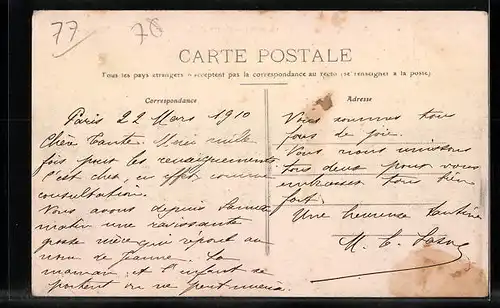 77 78
CARTE POSTALE
Tous les pays étrangers n'acceptent pas la correspondance au recto (se renseigner à la poste)
Correspondance
Paris 22 Mars 1910
Chère Tante. Merci mille
fois pour les renseignements
C'est cher, en effet comme
consultation.
Vous avons depuis Samedi
matin une ravissante
petite nièce qui répond au
nom de Jeanne. La
maman et l'enfant se
portent on ne peut mieux.
Adresse
Vous sommes tous
fous de joie.
Vous nous unissons
tous deux pour vous
embrasser tous bien
fort.
Une heureuse Tantine
M. C.